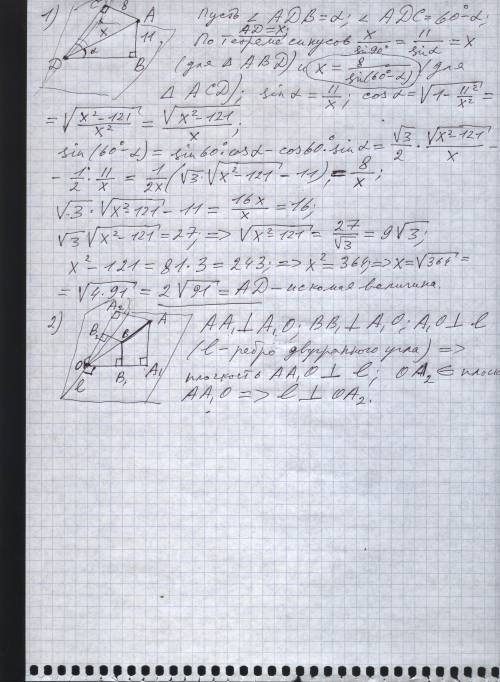 1) Пусть ∠ADB=α; ∠ADC=60°-α;
AD=x;
По теореме синусов x/sin90° = 11/sinα = x
(для ΔABD) и x = 8/sin(60°-α) (для
ΔACD); sinα = 11/x; cosα = √(1-11²/x²) =
= √((x²-121)/x²) = √(x²-121)/x;
sin(60°-α) = sin60°·cosα - cos60°·sinα = √3/2 · √(x²-121)/x -
- 1/2 · 11/x = 1/2x (√3·√(x²-121) - 11) = 8/x;
√3·√(x²-121) - 11 = 16x/x = 16;
√3 √(x²-121) = 27; => √(x²-121) = 27/√3 = 9√3;
x²-121 = 81·3 = 243; => x² = 364; => x = √364 =
= √(4·91) = 2√91 = AD - искомая величина.
2) AA₁⊥A₁O; BB₁⊥A₁O; A₁O⊥l
(l - ребро двугранного угла) =>
плоскость AA₁O⊥l; OA₂∈ плоск
AA₁O => l⊥OA₂.
C 8 A
x 11
D α B
A₂ A
B₂ B
O B₁ A₁
l